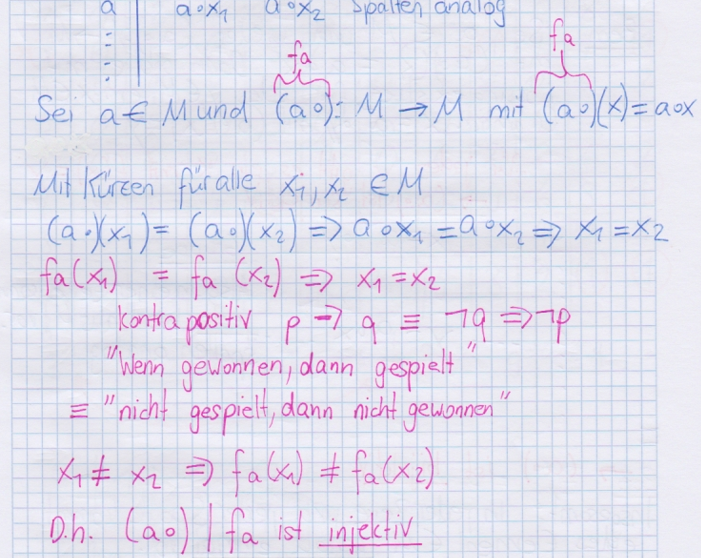 a | a∘x₁ a∘x₂ Spalten analog
fa fa
Sei a ∈ M und (a∘): M → M mit (a∘)(x) = a∘x
Mit Kürzen für alle x₁, x₂ ∈ M
(a∘)(x₁) = (a∘)(x₂) => a∘x₁ = a∘x₂ => x₁ = x₂
fa(x₁) = fa(x₂) => x₁ = x₂
kontrapositiv p → q ≡ ¬q => ¬p
"Wenn gewonnen, dann gespielt"
≡ "nicht gespielt, dann nicht gewonnen"
x₁ ≠ x₂ => fa(x₁) ≠ fa(x₂)
D.h. (a∘) | fa ist injektiv